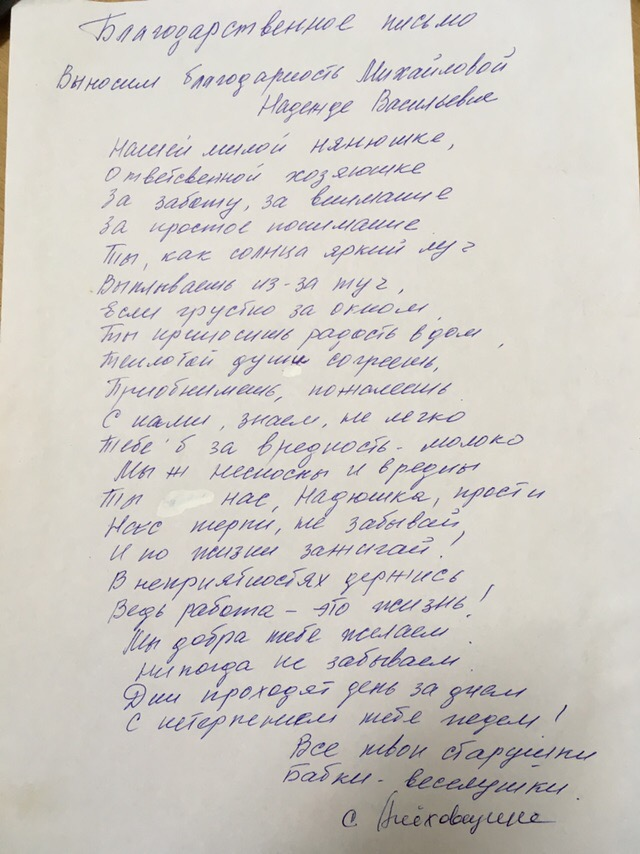 Благодарственное письмо
Выносим благодарность Михайловой
Надежде Васильевне
Нашей милой нянюшке,
Ответсвенной хозяюшке
За заботу, за внимание
За простое понимание
Ты, как солнца яркий луч
Выплываешь из-за туч,
Если грустно за окном,
Ты приносишь радость в дом,
Теплотой души согреешь,
Приобнимешь, пожалеешь
С нами, знаем, не легко
Тебе б за вредность - молоко
Мы ж несносны и вредны
Ты нас, Надюшка, прости
Нас терпи, не забывай
И по жизни зажигай!
В неприятностях держись
Ведь работа - это жизнь!
Мы добра тебе желаем
Никогда не забываем
Дни проходят день за днем
С нетерпением тебе ждем!
Все твои старушки
Бабки - веселушки.
с